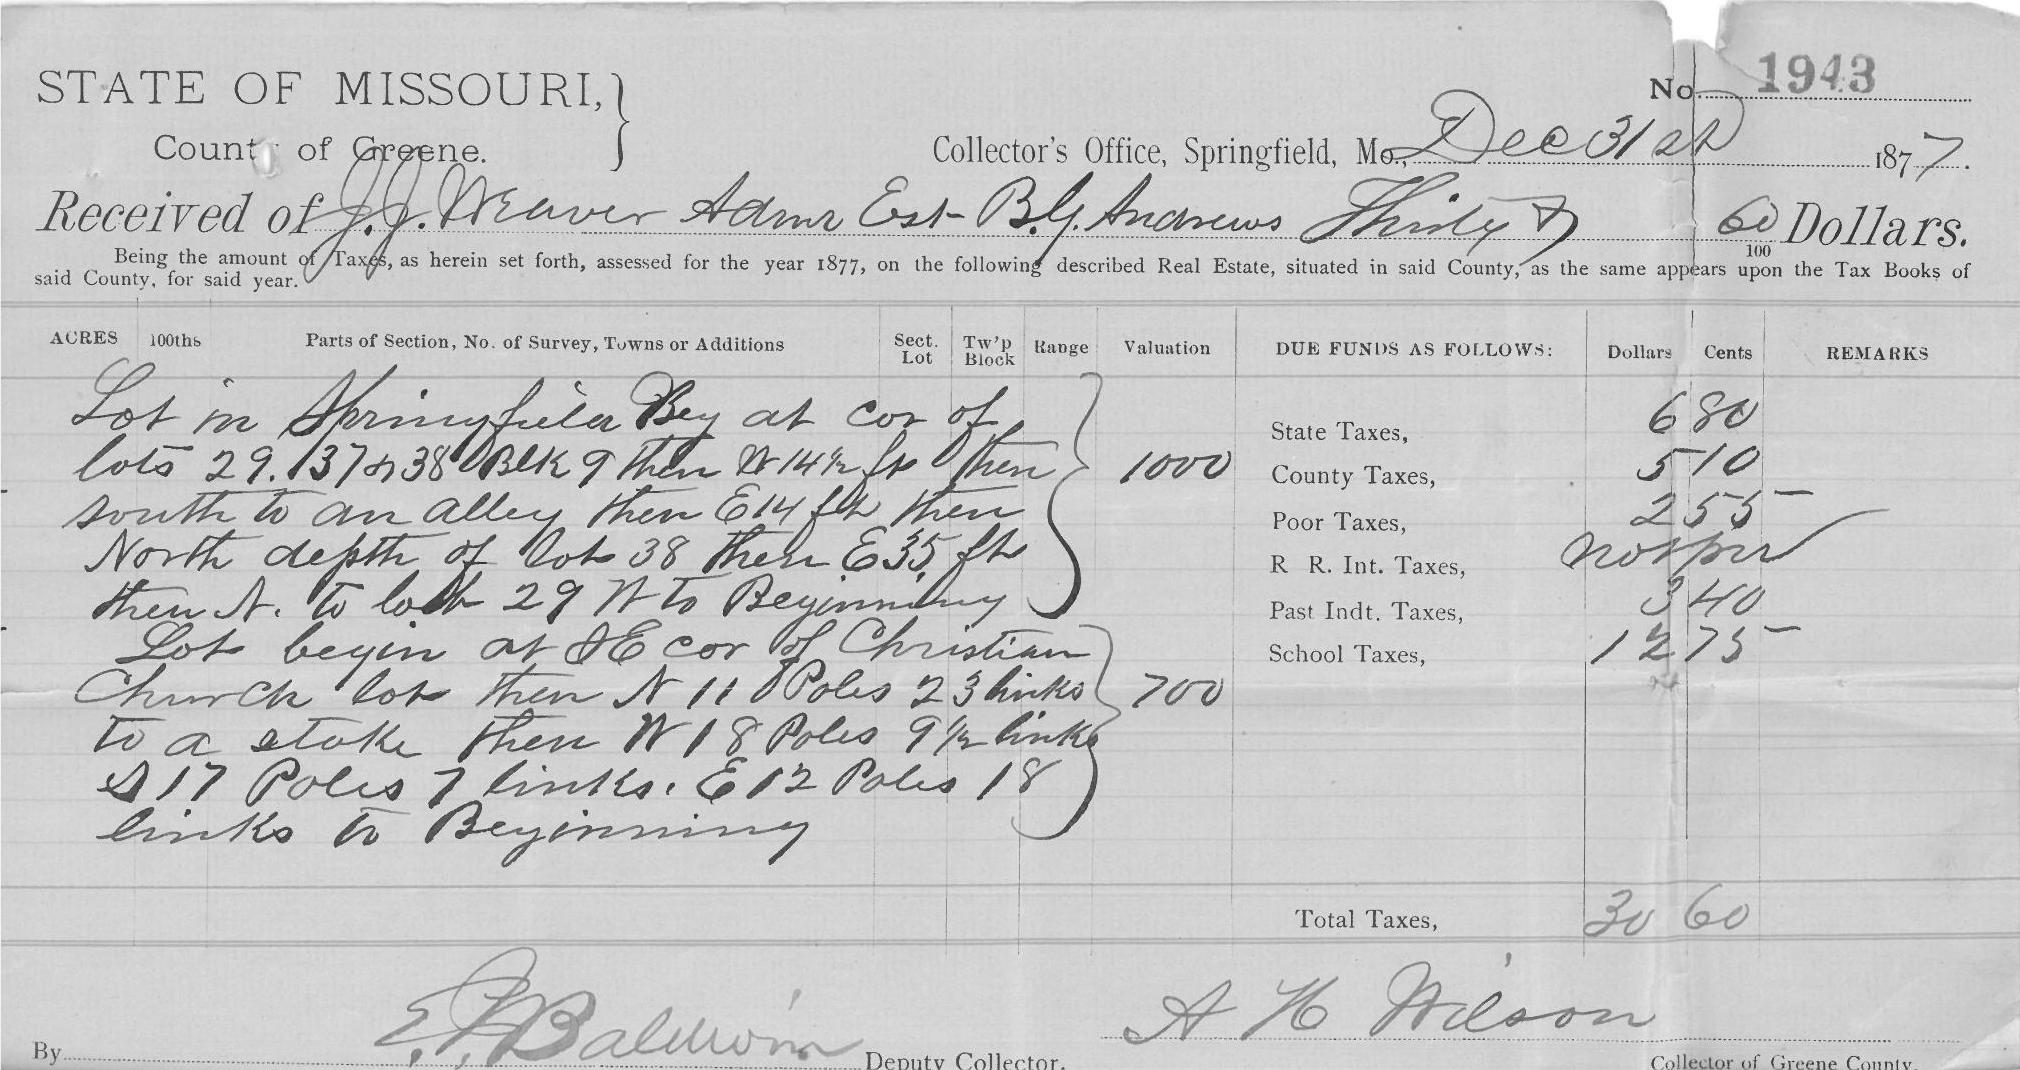 STATE OF MISSOURI,
County of Greene.
No. 1943
Collector's Office, Springfield, Mo., Dec 31st 1877.
Received of J. J. Weaver Admr Est- B. G. Andrews Thirty & 60/100 Dollars.
Being the amount of Taxes, as herein set forth, assessed for the year 1877, on the following described Real Estate, situated in said County, as the same appears upon the Tax Books of
said County, for said year.
ACRES 100ths Parts of Section, No. of Survey, Towns or Additions Sect. Lot Tw'p Block Range Valuation DUE FUNDS AS FOLLOWS: Dollars Cents REMARKS
Lot in Springfield Beg at cor of
lots 29. 37 & 38 Blk 9 then W 14½ ft then
south to an alley then E 14 ft then
North depth of lot 38 then E 35 ft
then N. to lot 29 W to Beginning
1000
Lot begin at SE cor of Christian
Church lot then N 11 Poles 23 links
to a stake then W 18 Poles 9½ links
S 17 Poles 7 links. E 12 Poles 18
links to Beginning
700
State Taxes, 6 80
County Taxes, 5 10
Poor Taxes, 2 55
R R. Int. Taxes,
Past Indt. Taxes, 3 40
School Taxes, 12 75
Total Taxes, 30 60
By Baldwin Deputy Collector.
A H Wilson
Collector of Greene County.